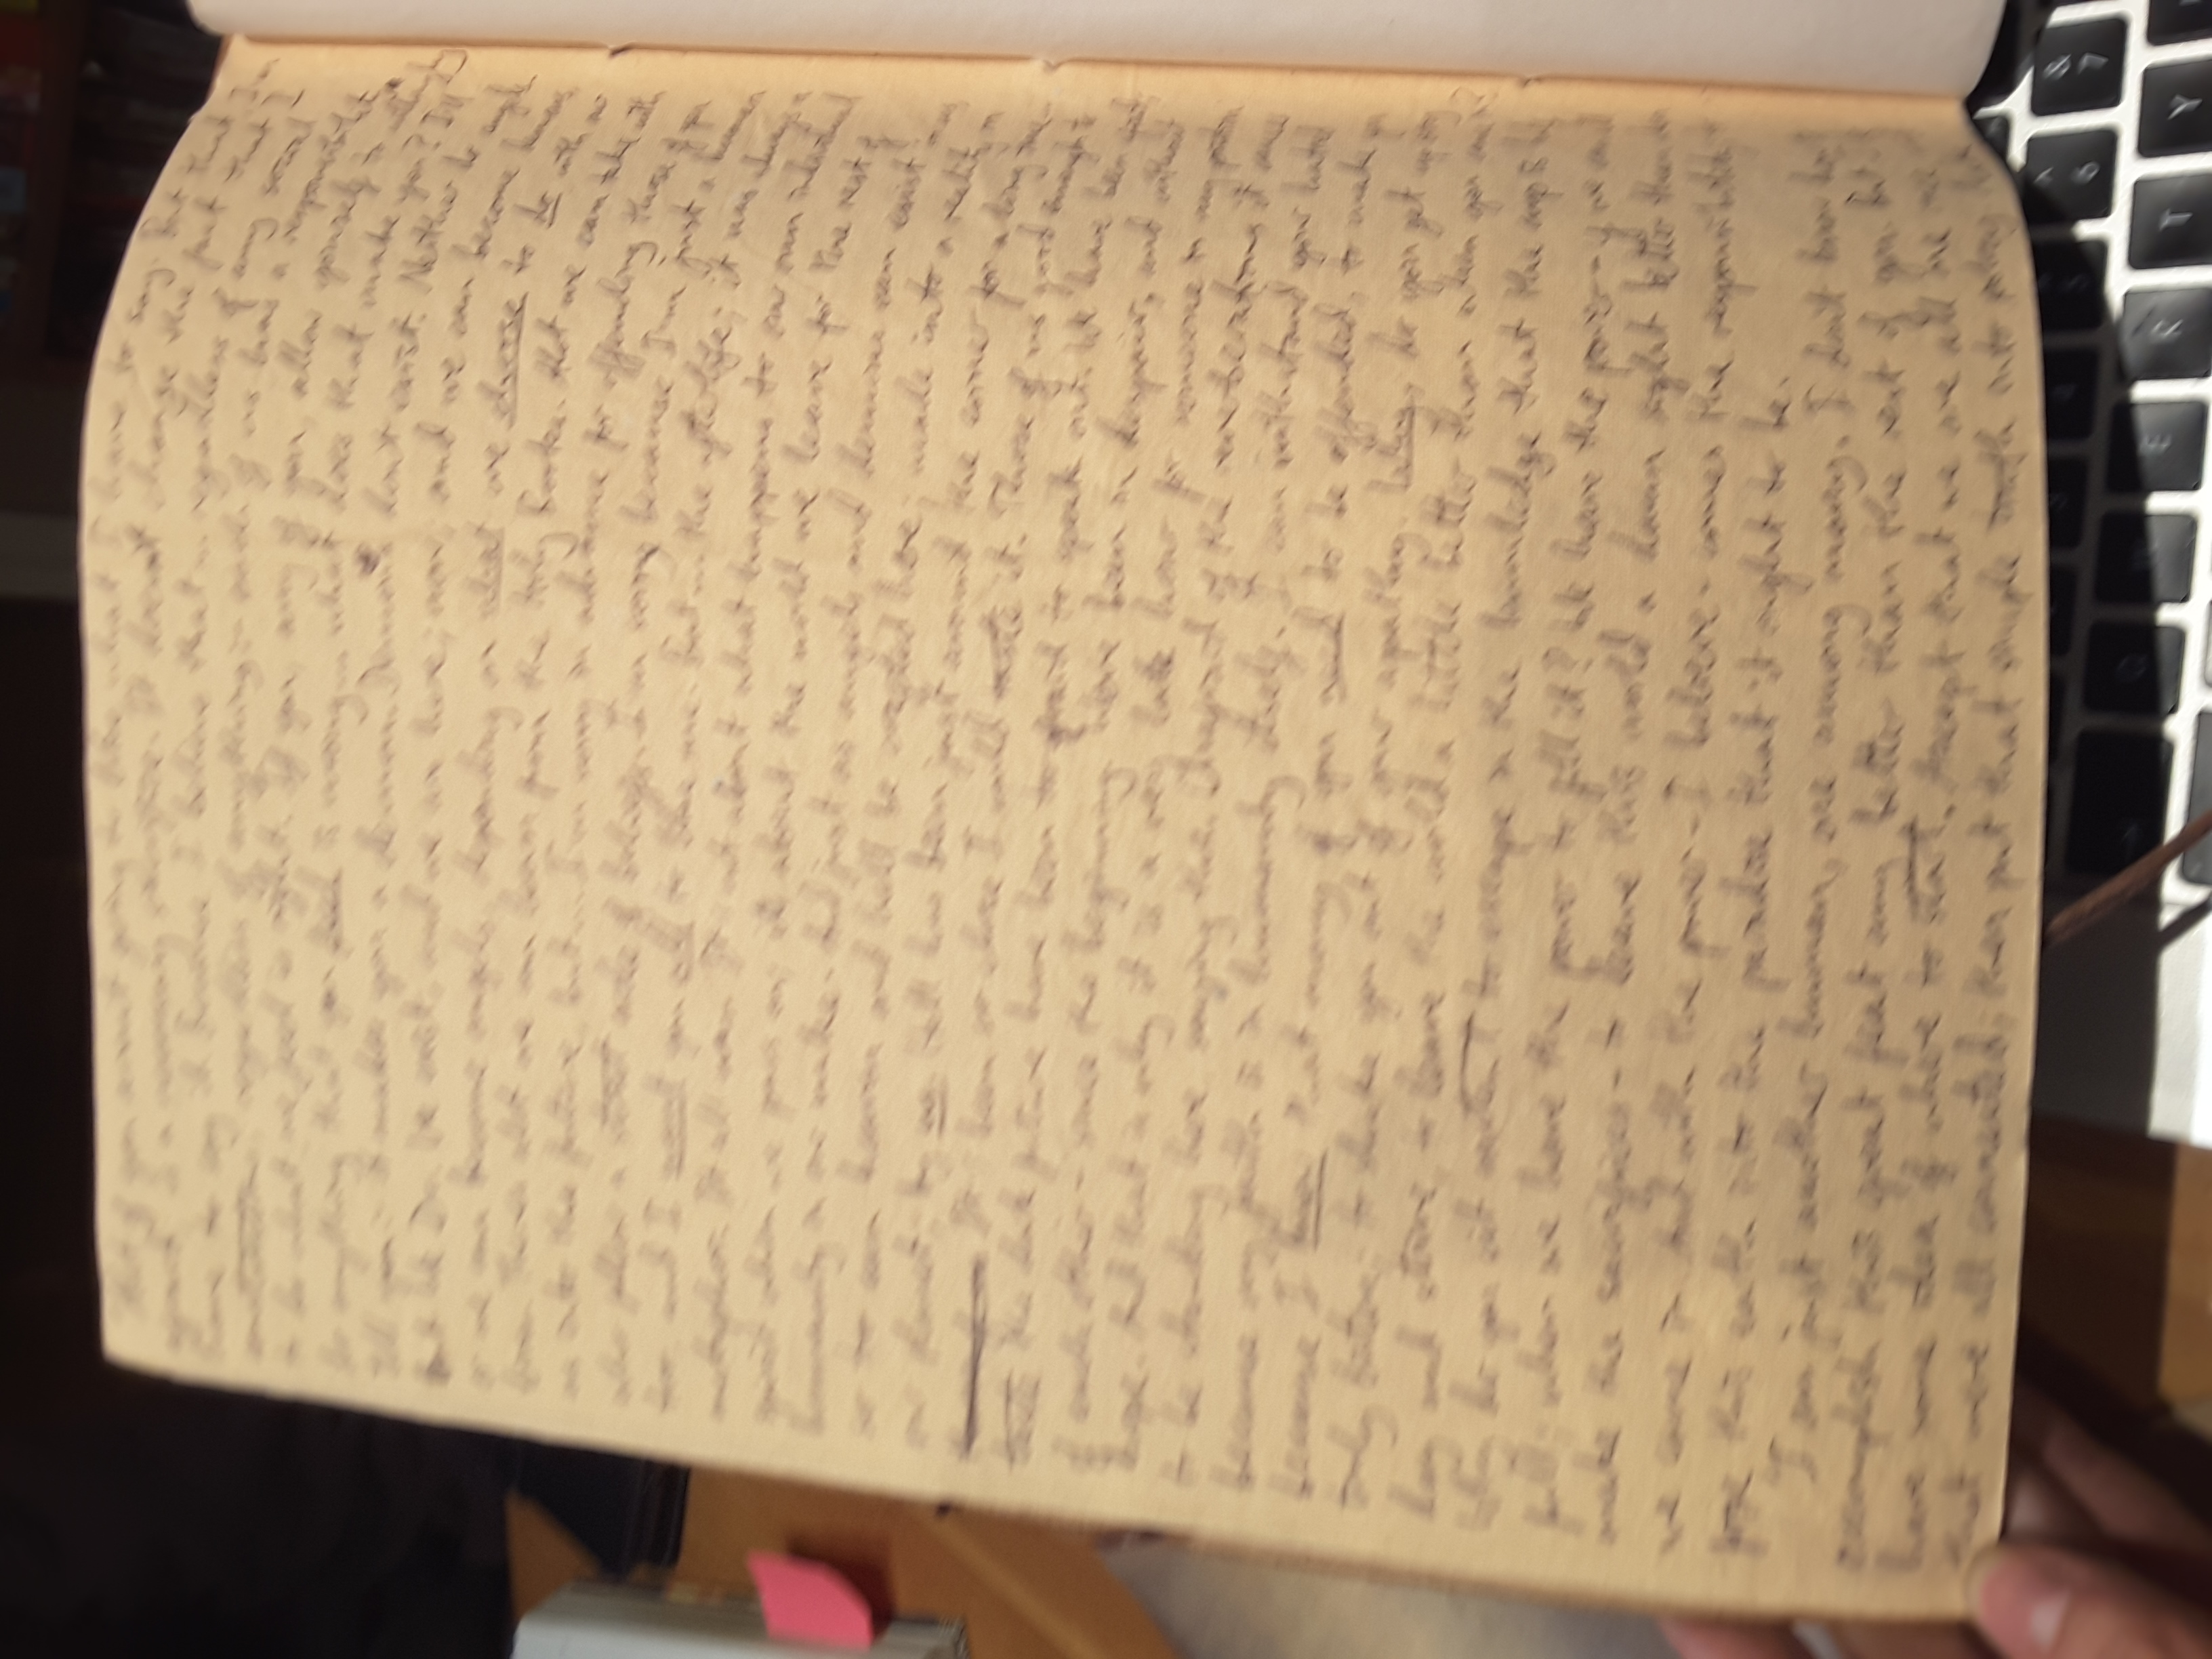 of you aren't going to like what I have to say. But that, I'm
is a necessary sacrifice. It doesn't change the fact that I
have to say it. Because I believe that... regardless of any
regardless of anything - each of us has a responsibility
to do what we feel is right. If you, any of you, allow yourself to
do anything that you is wrong... what does that make you? I'll
tell you - it makes you a demon. Demons don't exist. Neither do angels.
But we Do. We exist, and we are here; now; and we can become demons,
or we can become angels, depending on what we choose to do with our
time. There's alot we can learn from the Holy Books. Alot we can take with
us into the future, but... I'm sorry in advance for offending those of you
who follow a strict code of beliefs. I'm sorry because I'm just a human
too, and I want you all to like me. But... the afterlife; it was always a
metaphor. It all was. It's not about what happens to our own individual
when we pass on; it's about the world we leave for the rest of
humanity in our wake. And just as angels and demons can exist in us
so too can heaven and hell be here; made into a reality on
our planet - by us. Hell has been just around the corner for a long time...
It's been so close I could taste it. Those of us good enough to
the dark future have been to afraid to speak out. We have been
each other - since the beginning. We've been in despair, and without
hope. And that is why it is a very late hour for someone in my position
to be standing here saying this. of the reverberations it
because my faith is in humanity itself. I can withstand your hatred
because I know that many of you need to be offended, to make you
truly listen; to shake you out of your apathy. Why, do you get up every
day and strive, to leave the world a little better than when you came in?
Why do you sit content to escape in the knowledge that the cup is half
full; when we have the power to fill it? We have the power - if we
make the sacrifices - to leave this world a damn sight better than
we came in. And with the power - I believe - comes the responsibility to
this earth into the paradise that it ought to be.
I am just another human, one among many. I don't know how to
accomplish this great feat any better than the rest of you. But I
have some idea of where to start. Accept that we are all one
that we're all connected; then put that simple truth into policy